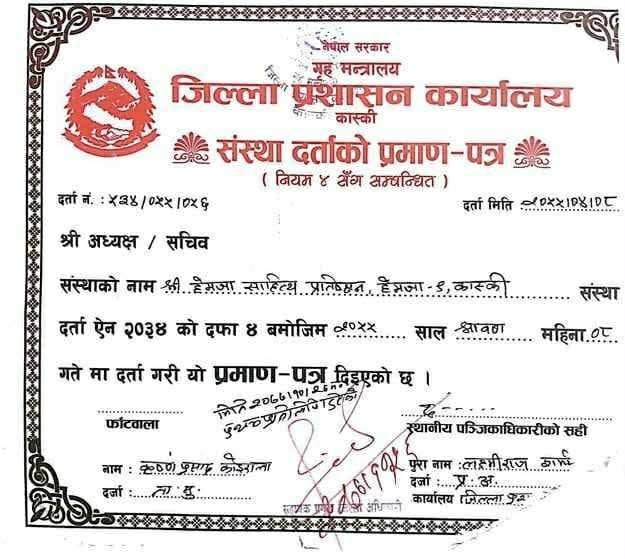 नेपाल सरकार
गृह मन्त्रालय
जिल्ला प्रशासन कार्यालय
कास्की
संस्था दर्ताको प्रमाण-पत्र
( नियम ४ सँग सम्बन्धित )
दर्ता नं. : ५३४/०५५/०५६ दर्ता मिति :२०५५।०४।०८
श्री अध्यक्ष / सचिव
संस्थाको नाम श्री हेमजा साहित्य प्रतिष्ठान, हेमजा - ९, कास्की संस्था
दर्ता ऐन २०३४ को दफा ४ बमोजिम २०५५ साल श्रावण महिना ०८
गते मा दर्ता गरी यो प्रमाण-पत्र दिइएको छ ।
मिति
फाँटवाला स्थानीय पञ्जिकाधिकारीको सही
नाम : कृष्ण प्रसाद कोइराला पुरा नाम : लक्ष्मीराज
दर्जा : ना. सु. दर्जा : प्र. अ.
सहायक प्रमुख जिल्ला अधिकारी कार्यालय जिल्ला